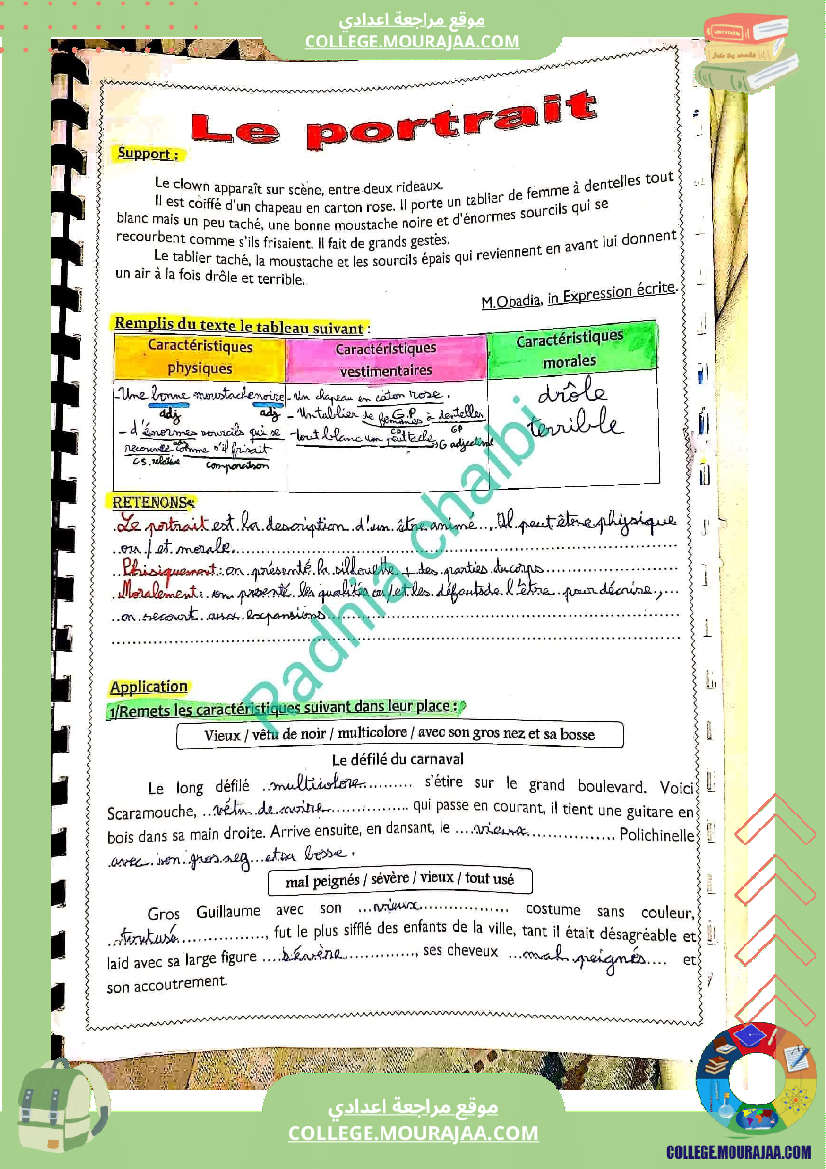 موقع مراجعة اعدادي
COLLEGE.MOURAJAA.COM
Le portrait
Support :
Le clown apparaît sur scène, entre deux rideaux.
Il est coiffé d'un chapeau en carton rose. Il porte un tablier de femme à dentelles tout
blanc mais un peu taché, une bonne moustache noire et d'énormes sourcils qui se
recourbent comme s'ils frisaient. Il fait de grands gestes.
Le tablier taché, la moustache et les sourcils épais qui reviennent en avant lui donnent
un air à la fois drôle et terrible.
M.Obadia, in Expression écrite.
Remplis du texte le tableau suivant :
Caractéristiques physiques
Caractéristiques vestimentaires
Caractéristiques morales
-Une bonne moustache noire
adj adj
- d'énormes sourcils qui se
comme s'il frisait
CS. relative comparaison
-Un chapeau en carton rose.
- Un tablier de femmes à dentelles
G.P GP
-tout blanc un peu
G adjectival
drôle
terrible
RETENONS:
Le portrait est la description d'un être animé. Il peut être physique
ou / et morale.
Phisiquement: on présente la silhouette + des parties du corps
Moralement: on présente les qualités ou/et les défauts de l'être pour décrire,
on recourt aux expansions
Radhia chaibi
Application
1/Remets les caractéristiques suivant dans leur place :
Vieux / vêtu de noir / multicolore / avec son gros nez et sa bosse
Le défilé du carnaval
Le long défilé ..multicolore.......... s'étire sur le grand boulevard. Voici
Scaramouche, ..vêtu de noire................ qui passe en courant, il tient une guitare en
bois dans sa main droite. Arrive ensuite, en dansant, le ....vieux................ Polichinelle
avec son gros neg...et sa bosse.
mal peignés / sévère / vieux / tout usé
Gros Guillaume avec son ...vieux................ costume sans couleur,
..tout usé................, fut le plus sifflé des enfants de la ville, tant il était désagréable et
laid avec sa large figure ....sévère............., ses cheveux ...mal peignés.... et
son accoutrement.
موقع مراجعة اعدادي
COLLEGE.MOURAJAA.COM
COLLEGE.MOURAJAA.COM